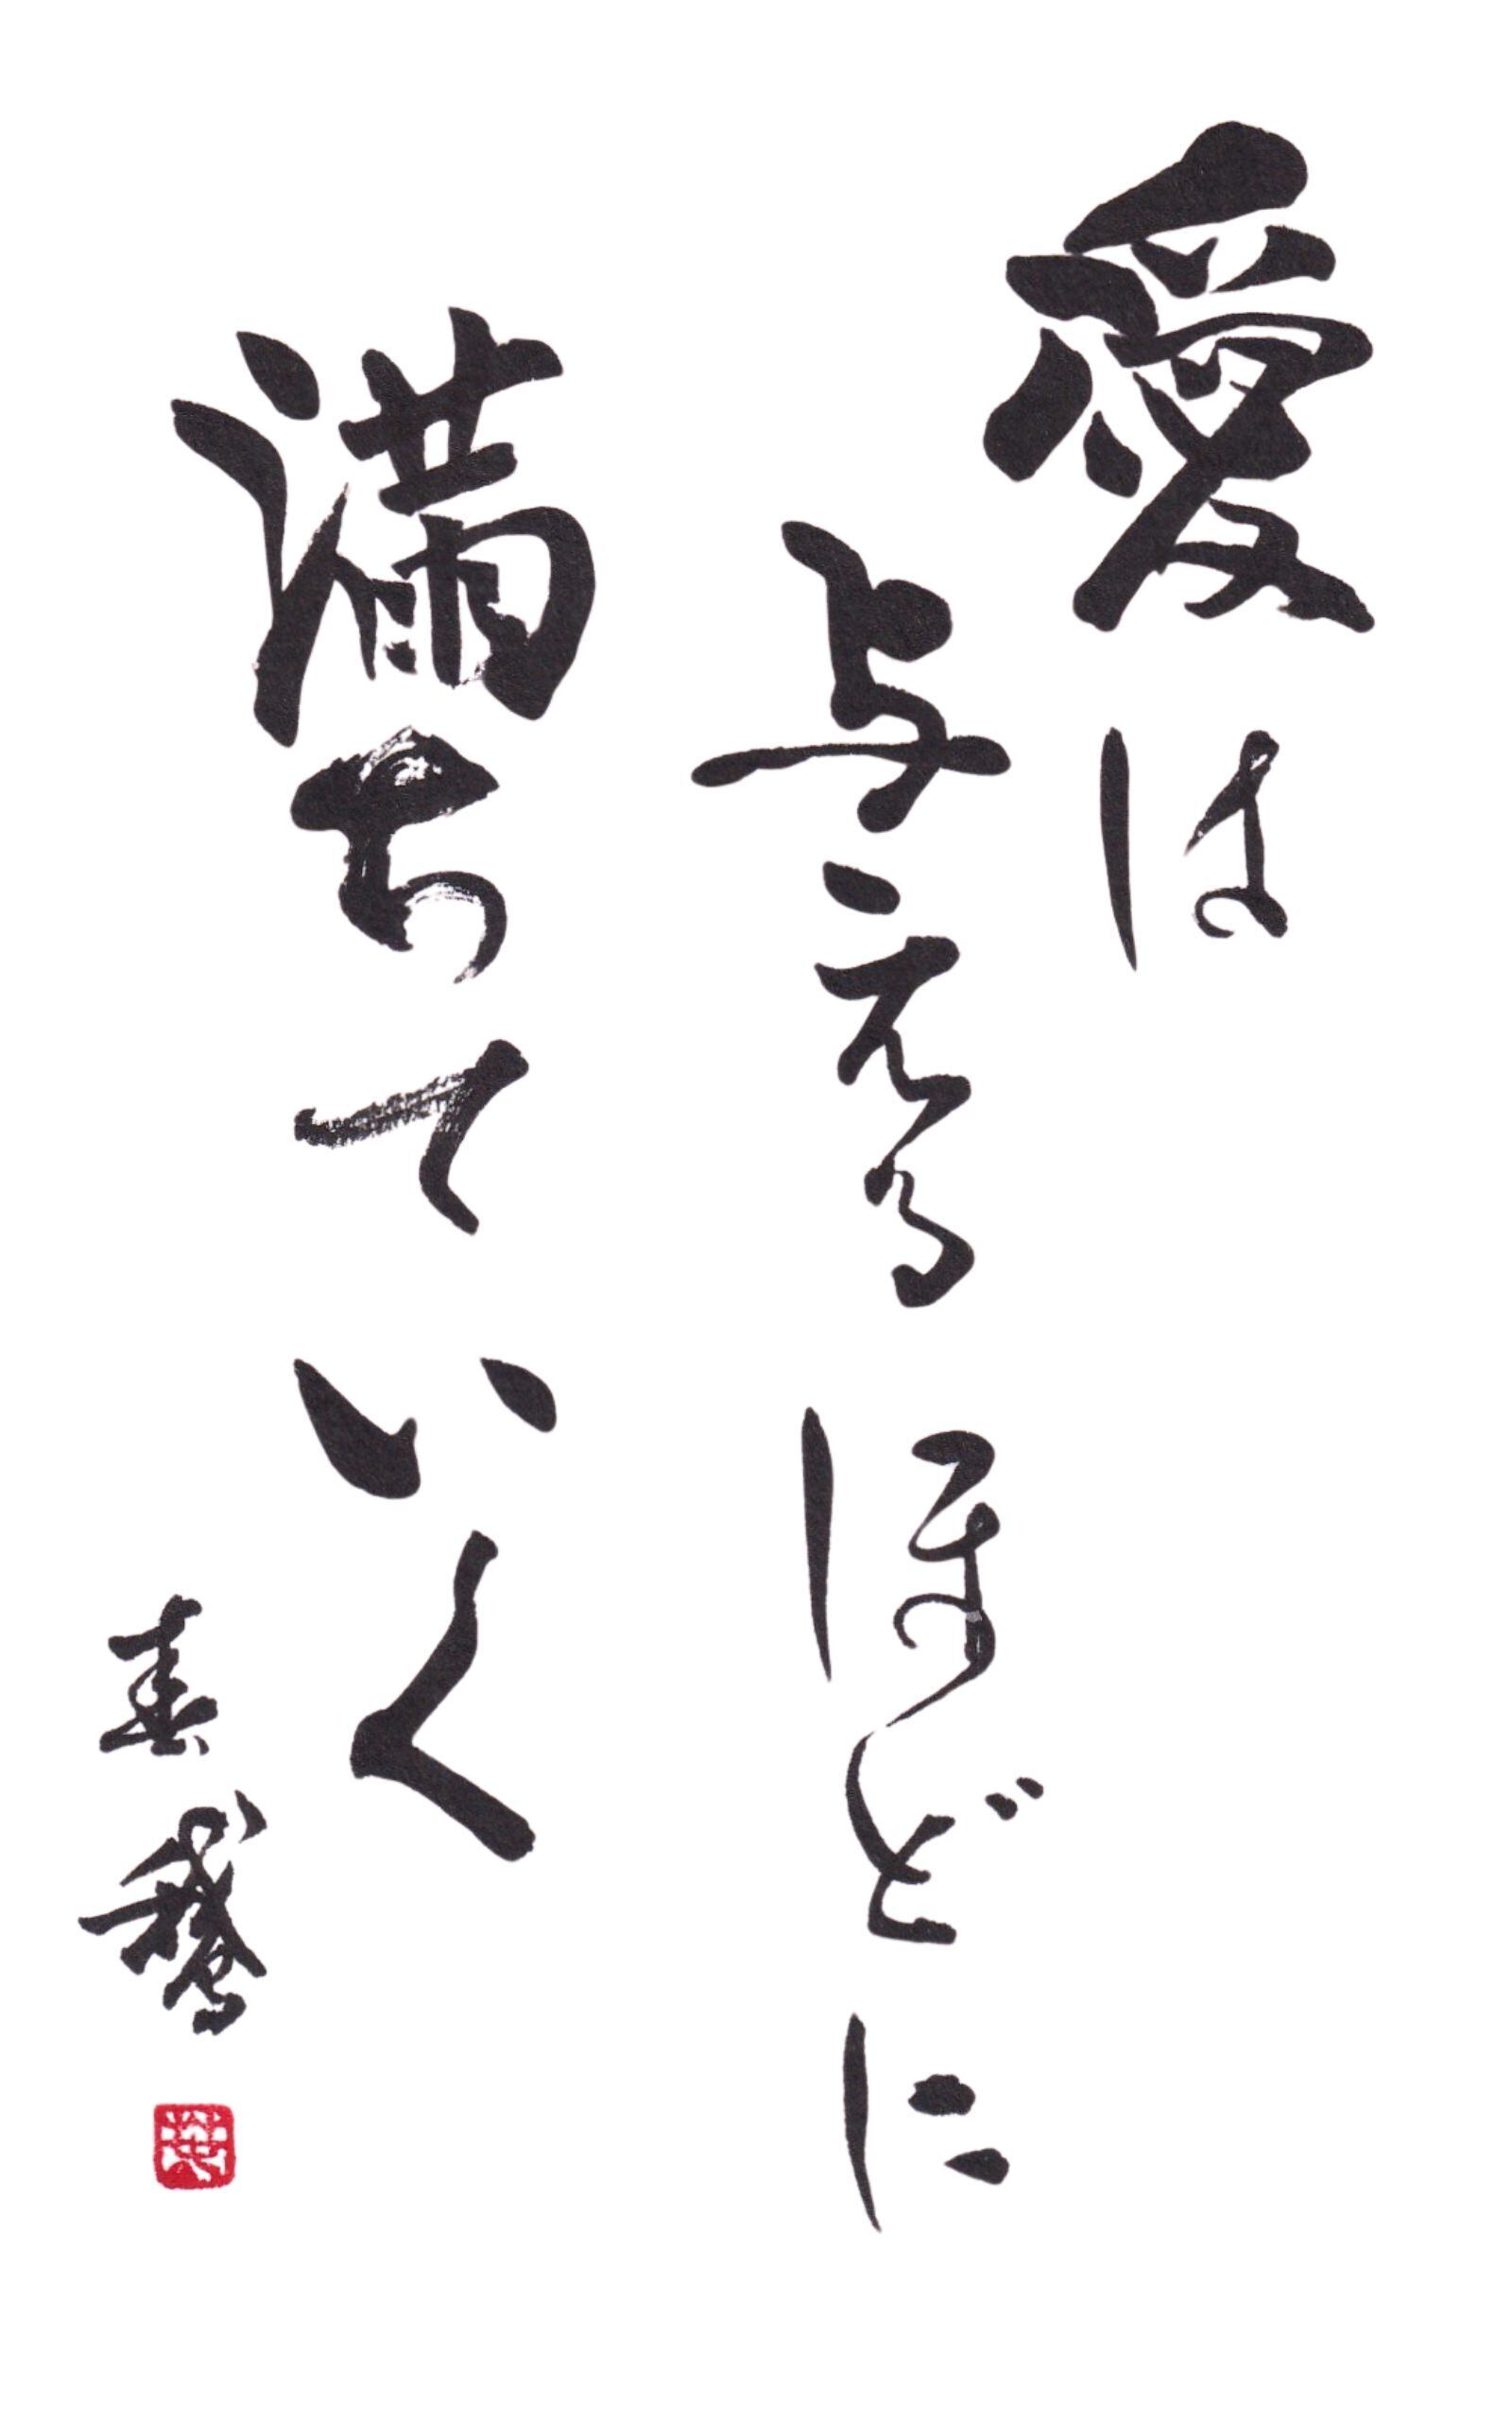 愛は
与えるほどに
満ちていく
春鵞